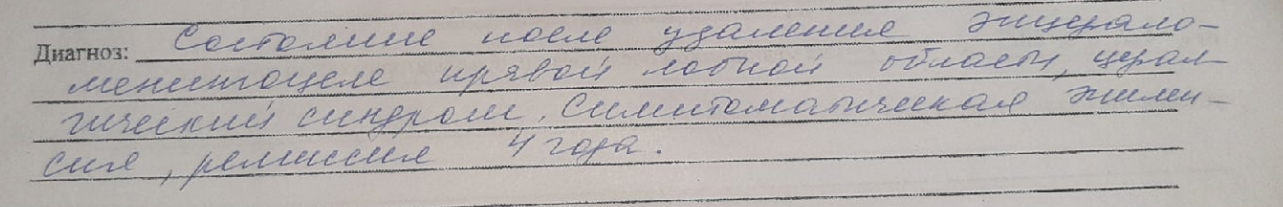 Диагноз: Состояние после удаления энцефало-
менингоцеле правой лобной области, церал-
гический синдром. Симптоматическая эпилеп-
сия, ремиссия 4 года.